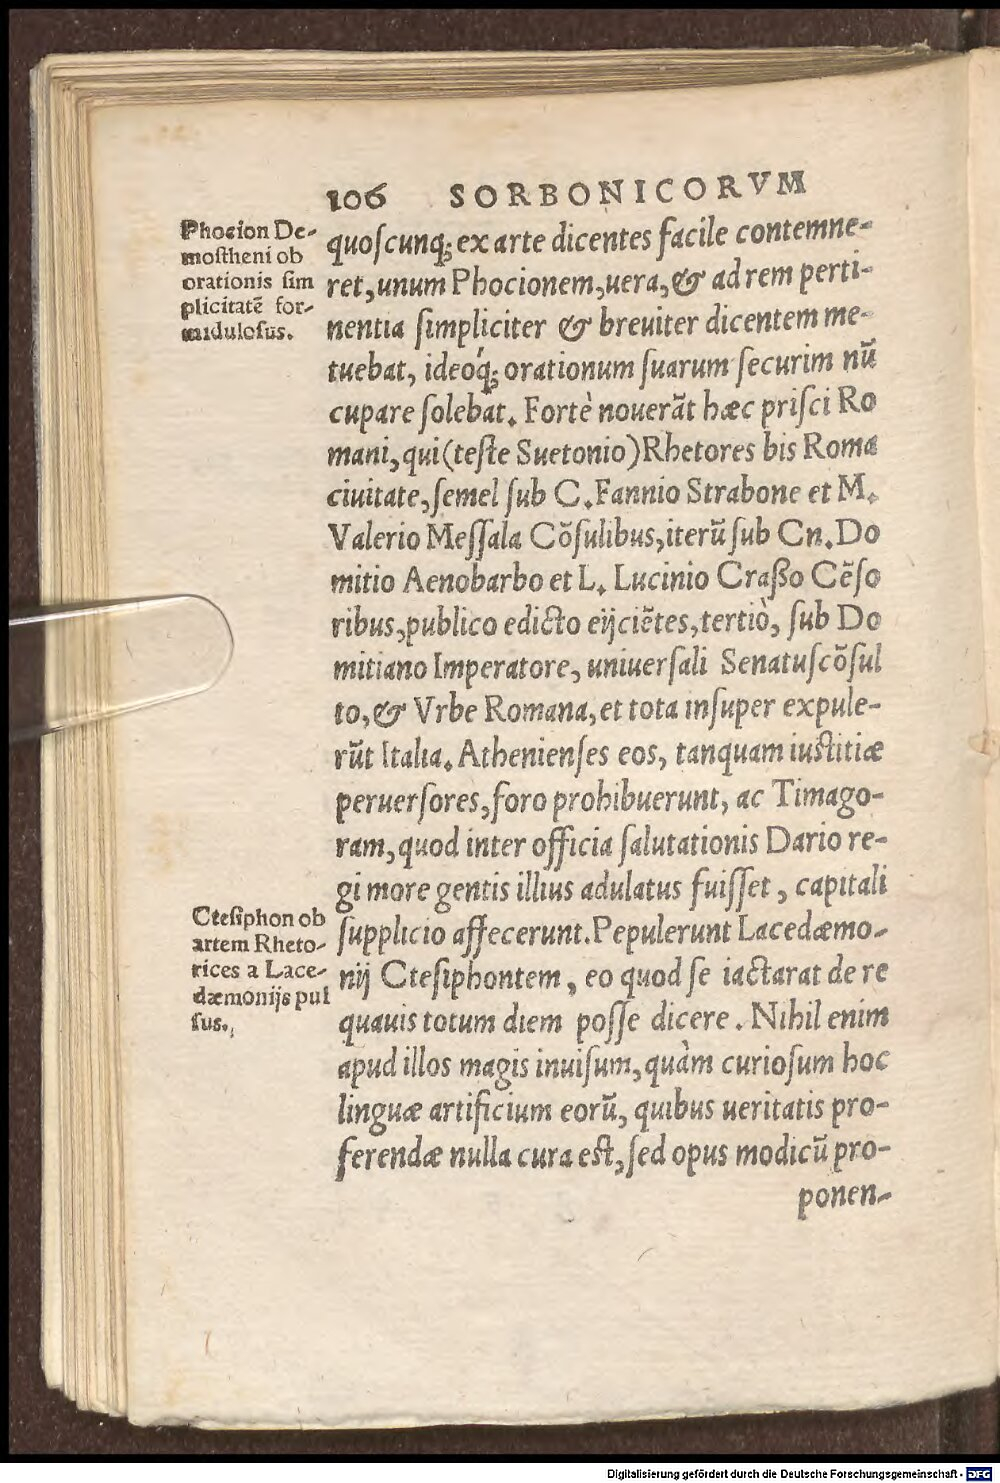 106 SORBONICORVM
Phocion De-
mostheni ob
orationis sim
plicitatē for-
midulosus.
quoſcunq; ex arte dicentes facile contemne-
ret, unum Phocionem, uera, & ad rem perti-
nentia ſimpliciter & breuiter dicentem me-
tuebat, ideóq; orationum ſuarum ſecurim nū
cupare ſolebat. Fortè nouerāt hæc priſci Ro
mani, qui (teſte Suetonio) Rhetores bis Roma
ciuitate, ſemel ſub C. Fannio Strabone et M.
Valerio Meſſala Cōſulibus, iterū ſub Cn. Do
mitio Aenobarbo et L. Lucinio Craßo Cēſo
ribus, publico edicto eijciētes, tertiò, ſub Do
mitiano Imperatore, uniuerſali Senatuſcōſul
to, & Vrbe Romana, et tota inſuper expule-
rūt Italia. Athenienſes eos, tanquam iuſtitiæ
peruerſores, foro prohibuerunt, ac Timago-
ram, quod inter officia ſalutationis Dario re-
gi more gentis illius adulatus fuiſſet, capitali
ſupplicio affecerunt. Pepulerunt Lacedæmo-
nij Cteſiphontem, eo quod ſe iactarat de re
quauis totum diem poſſe dicere. Nihil enim
apud illos magis inuiſum, quàm curioſum hoc
linguæ artificium eorū, quibus ueritatis pro-
ferendæ nulla cura eſt, ſed opus modicū pro-
ponen-
Cteſiphon ob
artem Rheto-
rices a Lace-
dæmonijs pul
ſus.
Digitalisierung gefördert durch die Deutsche Forschungsgemeinschaft - DFG